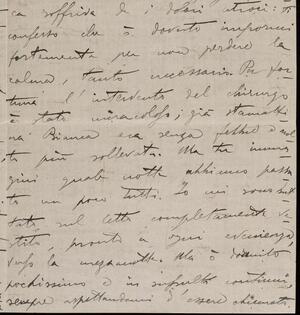 ca soffriva de i dolori atroci: ti
confesso che ò dovuto impormi
fortemente per non perdere la
calma, tanto necessaria. Per for
tuna l'intervento del chirurgo
è stato miracoloso; già stamatti
na Bianca era senza febbre e mol
to più sollevata. Ma tu imma
gini quale notte abbiamo passa
to un poco tutti. Io mi sono but
tata sul letto completamente ve
stita, pronta a ogni evenienza,
verso la mezzanotte. Ma ò dormito
pochissimo e in sussulti continui,
sempre aspettandomi d'essere chiamata.